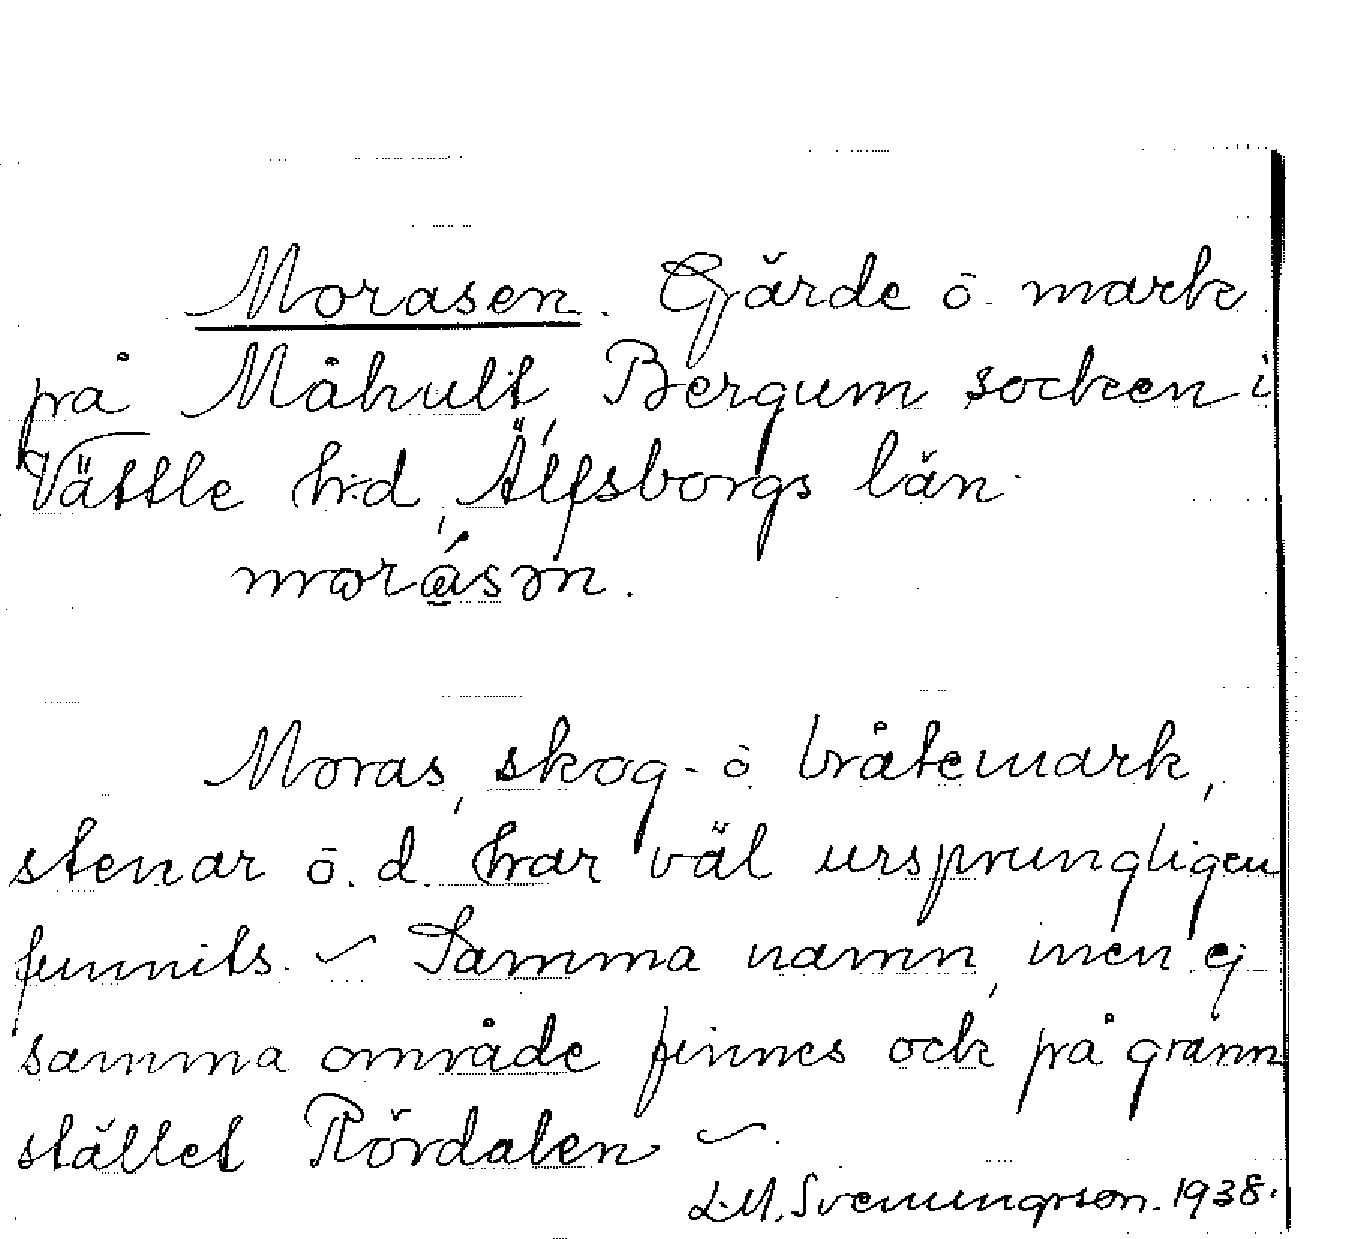 Morasen. Gärde o. mark
på Måhult, Bergum socken i
Vättle h:d, Älfsborgs län.
morásən.
Moras, skog- o. bråtemark,
stenar o. d. har väl ursprungligen
funnits. – Samma namn, men ej
samma område finnes ock på grann
stället Rördalen –.
L.M. Svenungson. 1938.